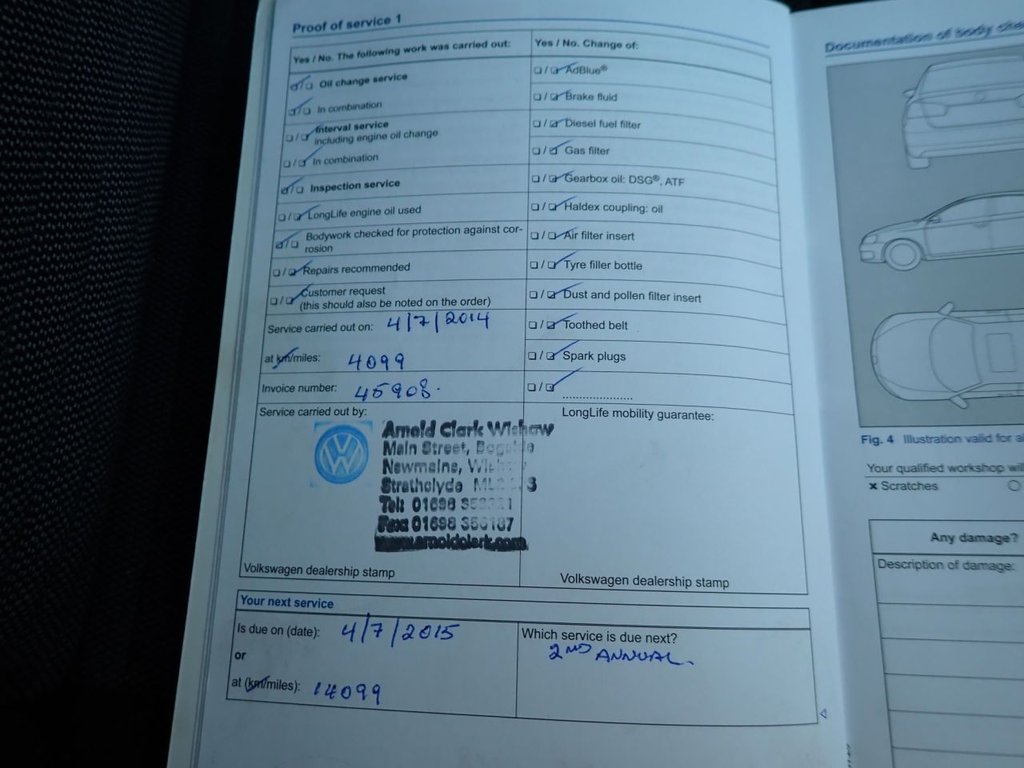 Proof of service 1
Yes / No. The following work was carried out:
Oil change service
In combination
Interval service
including engine oil change
In combination
Inspection service
LongLife engine oil used
Bodywork checked for protection against cor-
rosion
Repairs recommended
Customer request
(this should also be noted on the order)
Service carried out on: 4/7/2014
at km/miles: 4099
Invoice number: 45908.
Yes / No. Change of:
AdBlue®
Brake fluid
Diesel fuel filter
Gas filter
Gearbox oil: DSG®, ATF
Haldex coupling: oil
Air filter insert
Tyre filler bottle
Dust and pollen filter insert
Toothed belt
Spark plugs
Service carried out by:
Arnold Clark Wishaw
Main Street,
Newmains,
Strathclyde
Tel: 01698
Fax: 01698
www.arnoldclark.com
Volkswagen dealership stamp
LongLife mobility guarantee:
Volkswagen dealership stamp
Your next service
Is due on (date): 4/7/2015
or
at (km/miles): 14099
Which service is due next?
2ND ANNUAL.
Documentation of body
Fig. 4 Illustration valid for
Your qualified workshop
x Scratches
Any damage?
Description of damage: